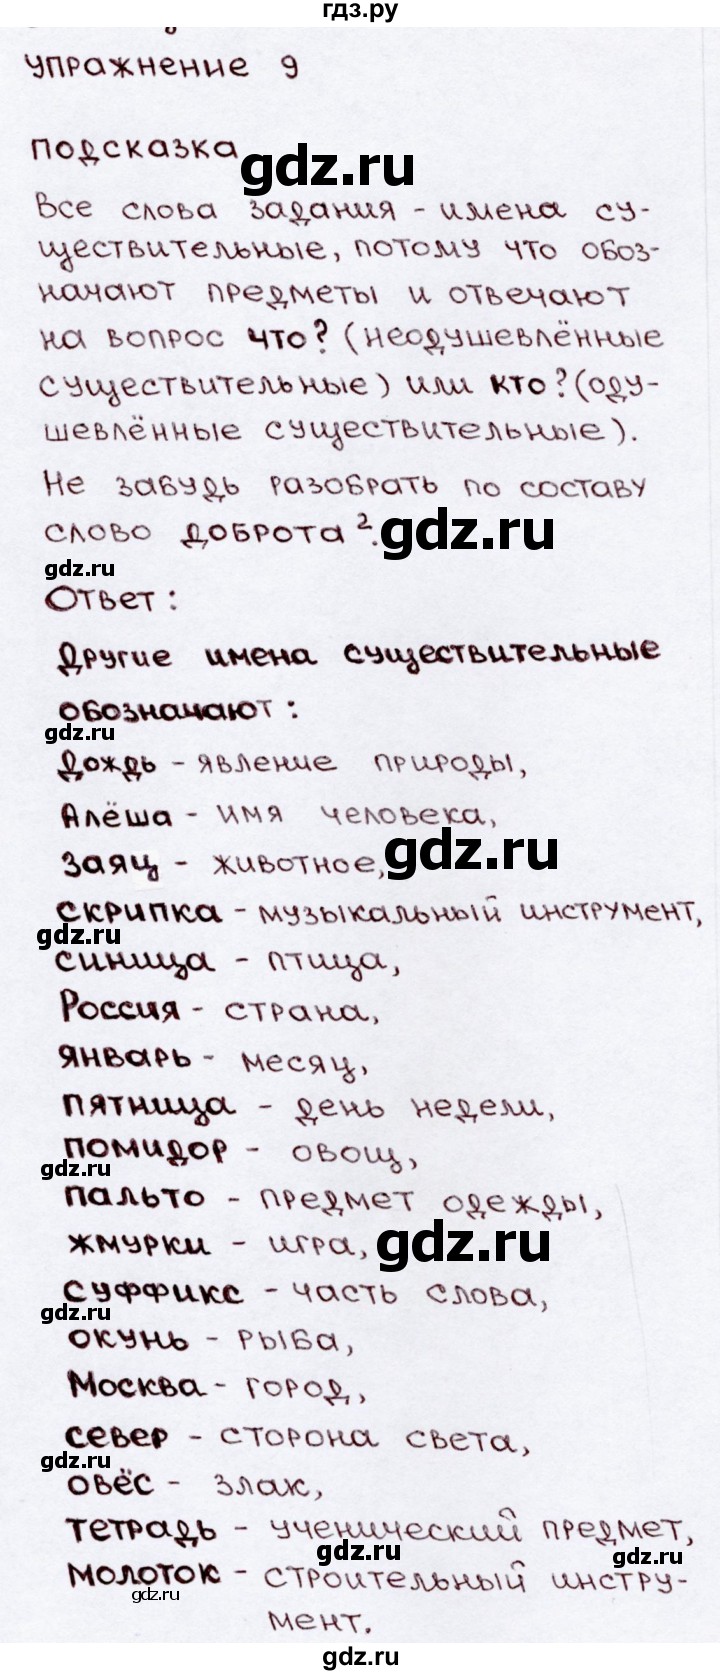 гдз.ру
упражнение 9
подсказка
gdz.ru
Все слова задания - имена су-
ществительные, потому что обоз-
начают предметы и отвечают
на вопрос что? (неодушевлённые
существительные) или кто? (оду-
шевлённые существительные).
Не забудь разобрать по составу
слово доброта².
gdz.ru
gdz.ru
Ответ:
Другие имена существительные
обозначают:
gdz.ru
Дождь - явление природы,
Алёша - имя человека,
заяц - животное,
gdz.ru
скрипка - музыкальный инструмент,
gdz.ru
синица - птица,
Россия - страна,
январь - месяц,
пятница - день недели,
помидор - овощ,
gdz.ru
пальто - предмет одежды,
жмурки - игра,
gdz.ru
суффикс - часть слова,
gdz.ru
окунь - рыба,
Москва - город,
север - сторона света,
gdz.ru
овёс - злак,
тетрадь - ученический предмет,
gdz.ru
gdz.ru
молоток - строительный инстру-
gdz.ru
мент.
gdz.ru